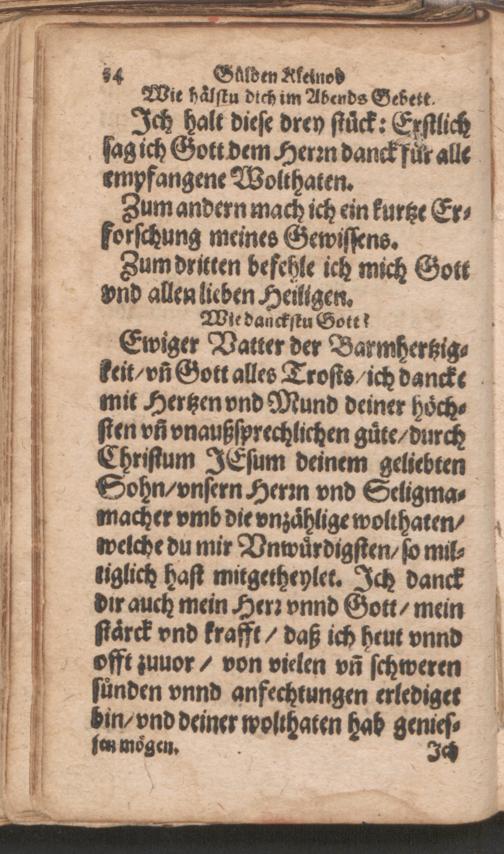 54 Gülden Kleinod
Wie hälstu dich im Abends Gebett.
Ich halt diese drey stück: Erstlich
sag ich Gott dem Herrn danck für alle
empfangene Wolthaten.
Zum andern mach ich ein kurtze Er-
forschung meines Gewissens.
Zum dritten befehle ich mich Gott
vnd allen lieben Heiligen.
Wie danckstu Gott?
Ewiger Vatter der Barmhertzig-
keit/vñ Gott alles Trosts/ich dancke
mit Hertzen vnd Mund deiner höch-
sten vñ vnaußsprechlichen güte/durch
Christum JEsum deinem geliebten
Sohn/vnsern Herrn vnd Seligma-
macher vmb die vnzählige wolthaten/
welche du mir Vnwürdigsten/so mil-
tiglich hast mitgetheylet. Ich danck
dir auch mein Herr vnnd Gott/mein
stärck vnd krafft/daß ich heut vnnd
offt zuuor/von vielen vñ schweren
sünden vnnd anfechtungen erlediget
bin/vnd deiner wolthaten hab genies-
sen mögen.
Ich